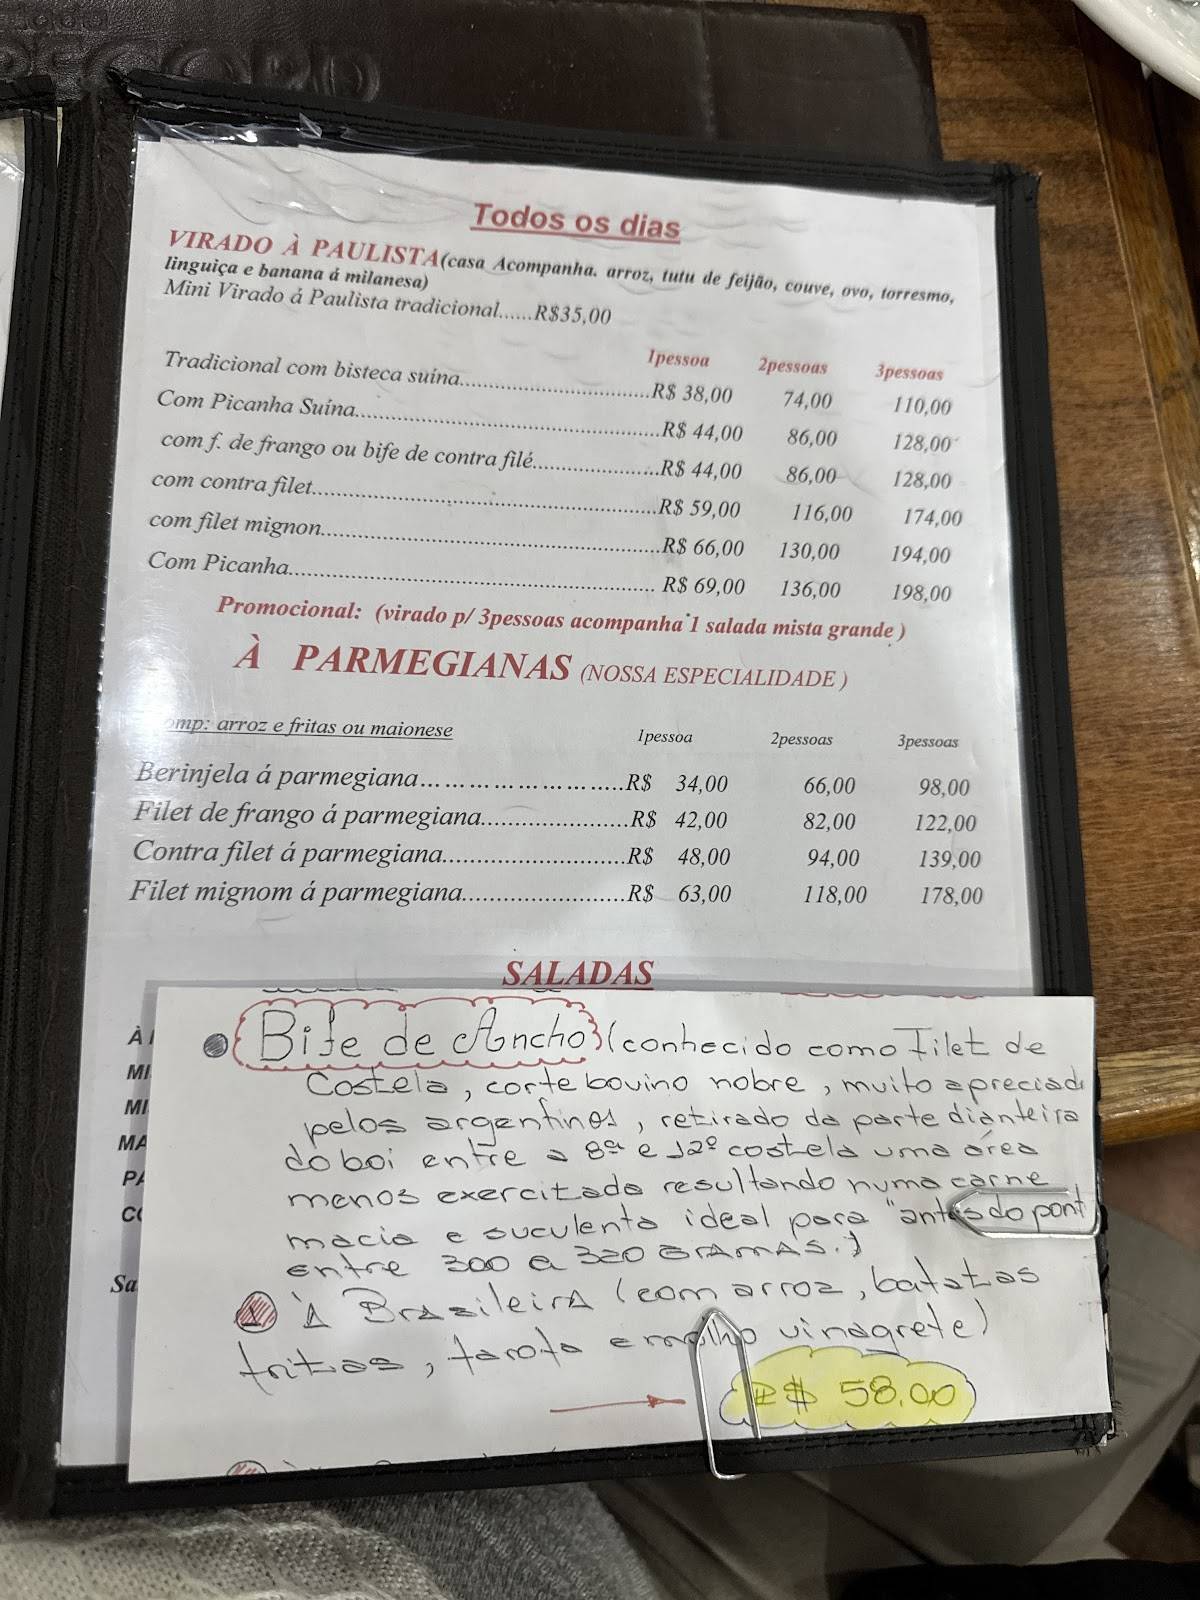 RECORD
Todos os dias
VIRADO À PAULISTA(casa Acompanha. arroz, tutu de feijão, couve, ovo, torresmo,
linguiça e banana á milanesa)
Mini Virado á Paulista tradicional......R$35,00
1pessoa 2pessoas 3pessoas
Tradicional com bisteca suína..............................R$ 38,00 74,00 110,00
Com Picanha Suína................................................R$ 44,00 86,00 128,00
com f. de frango ou bife de contra filé....................R$ 44,00 86,00 128,00
com contra filet.......................................................R$ 59,00 116,00 174,00
com filet mignon......................................................R$ 66,00 130,00 194,00
Com Picanha........................................................... R$ 69,00 136,00 198,00
Promocional: (virado p/ 3pessoas acompanha 1 salada mista grande )
À PARMEGIANAS (NOSSA ESPECIALIDADE )
omp: arroz e fritas ou maionese 1pessoa 2pessoas 3pessoas
Berinjela á parmegiana……………………….....R$ 34,00 66,00 98,00
Filet de frango á parmegiana.......................R$ 42,00 82,00 122,00
Contra filet á parmegiana............................R$ 48,00 94,00 139,00
Filet mignom á parmegiana.........................R$ 63,00 118,00 178,00
SALADAS
Bife de Ancho (conhecido como Filet de
Costela, corte bovino nobre, muito apreciad
pelos argentinos, retirado da parte dianteira
do boi entre a 8ª e 12º costela uma área
menos exercitada resultando numa carne
macia e suculenta ideal para "antes do pont
entre 300 a 320 GRAMAS.)
À BRASILEIRA (com arroz, batatas
fritas, farofa e molho vinagrete)
R$ 58,00